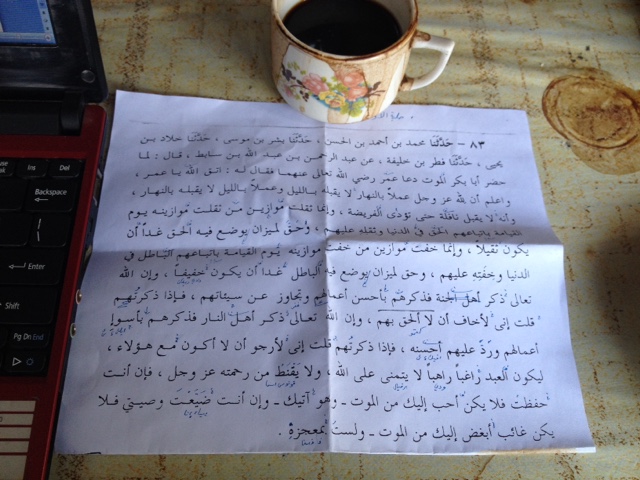 ٨٣ - حَدَّثَنَا محمد بن أحمد بن الحسن ، حَدَّثَنَا بشر بن موسى ، حَدَّثَنَا خلاد بن
يحيى ، حَدَّثَنَا فطر بن خليفة ، عن عبد الرحمن بن عبد الله بن سابط ، قال : لما
حضر أبا بكر الموت دعا عمر رضي الله تعالى عنهما فقال له : اتق الله يا عمر ،
واعلم أن لله عز وجل عملاً بالنهار لا يقبله بالليل وعملاً بالليل لا يقبله بالنهار ،
وأنه لا يقبل نافلة حتى تؤدى الفريضة ، وإنما ثقلت موازين من ثقلت موازينه يوم
القيامة باتباعهم الحق في الدنيا وثقله عليهم ، وحق لميزان يوضع فيه الحق غداً أن
يكون ثقيلاً ، وإنما خفت موازين من خفت موازينه يوم القيامة باتباعهم الباطل في
الدنيا وخفته عليهم ، وحق لميزان يوضع فيه الباطل غداً أن يكون خفيفاً ، وإن الله
تعالى ذكر أهل الجنة فذكرهم بأحسن أعمالهم وتجاوز عن سيئاتهم ، فإذا ذكرتهم
قلت إنى لأخاف أن لا ألحق بهم ، وإن الله تعالى ذكر أهل النار فذكرهم بأسوإ
أعمالهم وردّ عليهم أحسنه ، فإذا ذكرتهم قلت إنى لأرجو أن لا أكون مع هؤلاء ،
ليكون العبد راغباً راهباً لا يتمنى على الله ، ولا يقنط من رحمته عز وجل ، فإن أنت
حفظت فلا يكن أحب إليك من الموت ـ وهو آتيك ـ وإن أنت ضَيَّعْتَ وصيتي فلا
يكن غائب أبغض إليك من الموت ـ ولست بمعجزة .
Ins Del
Backspace
Enter
Shift
Pg Dn End